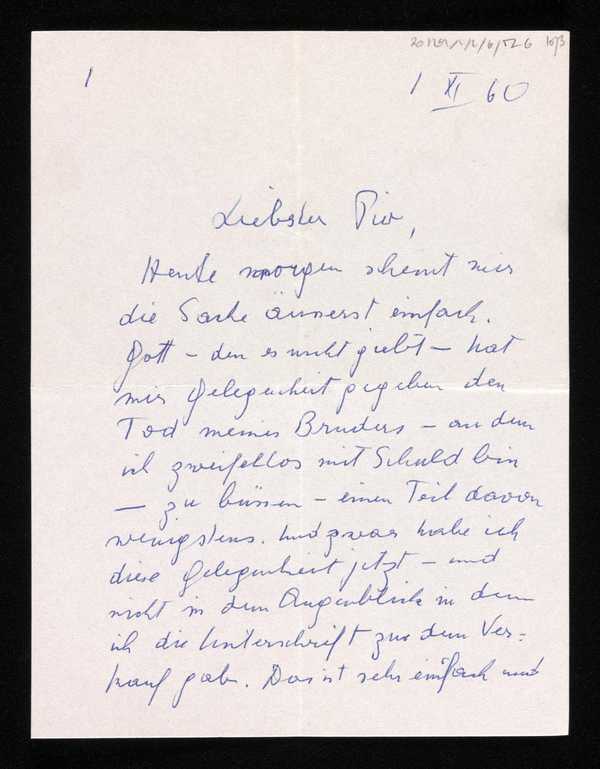 1
1 XI 60
Liebster Piv,
Heute morgen scheint mir
die Sache äusserst einfach.
Gott – den es nicht giebt – hat
mir Gelegenheit gegeben den
Tod meines Bruders – an dem
ich zweifellos mit Schuld bin
– zu büssen – einen Teil davon
wenigstens. Und zwar habe ich
diese Gelegenheit jetzt – und
nicht in dem Augenblick in dem
ich die Unterschrift zur dem Ver=
kauf gab. Das ist sehr einfach und